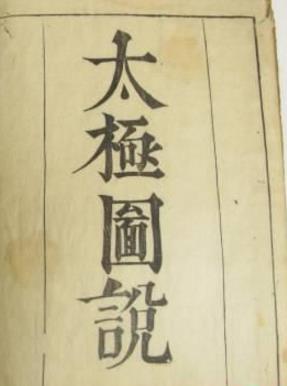 太極圖說